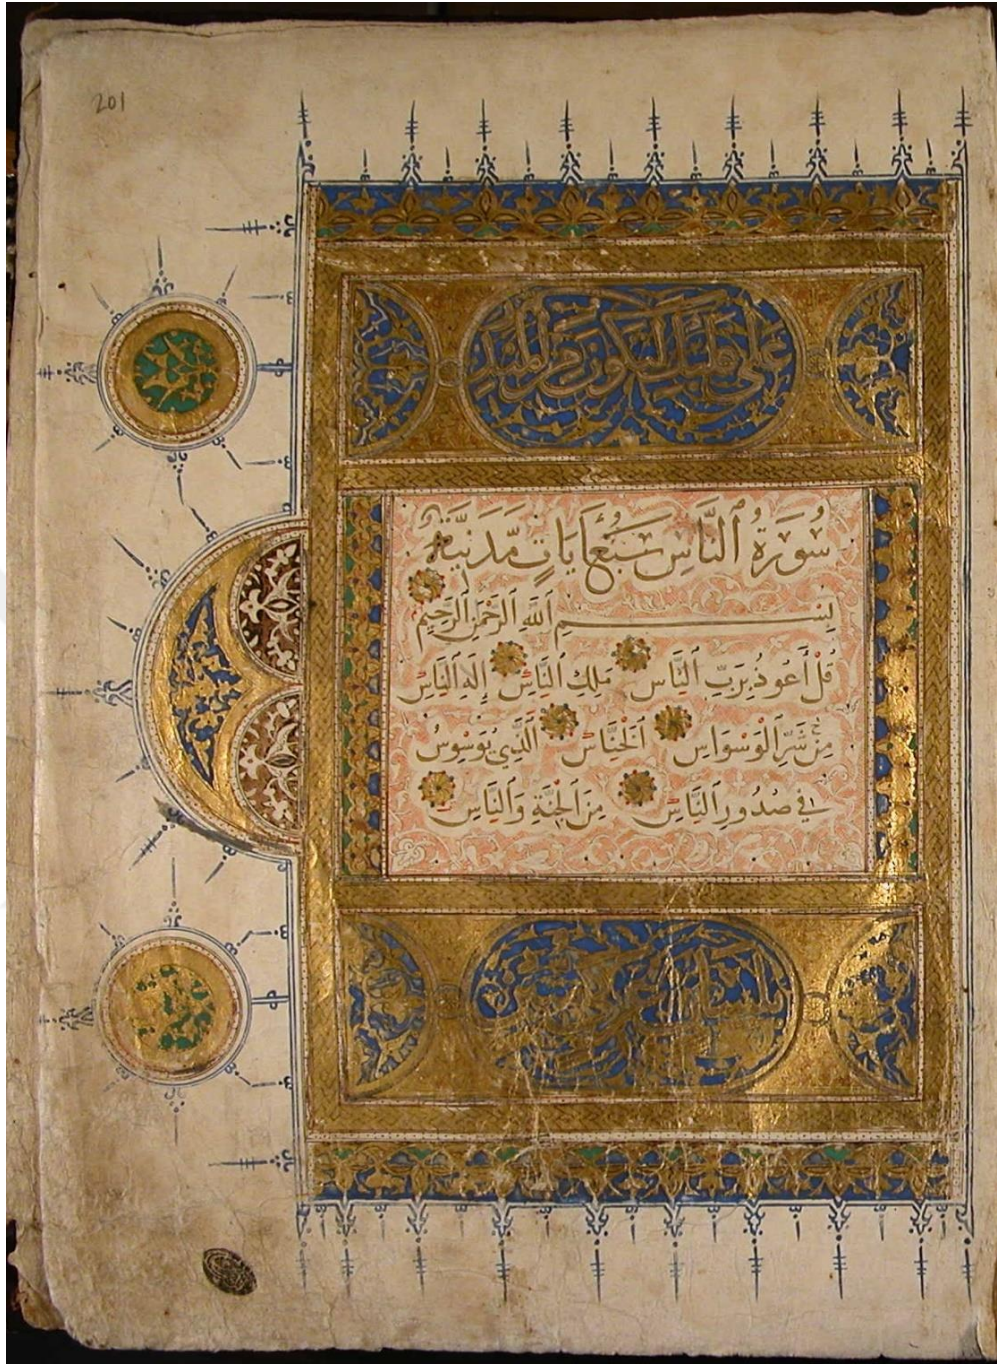 201
على قلبك لتكون من المنذرين
سُورَةُ ٱلنَّاسِ سَبْعُ ءَايَاتٍ مَّدَنِيَّة
بِسْمِ ٱللَّهِ ٱلرَّحْمَٰنِ ٱلرَّحِيمِ
قُلْ أَعُوذُ بِرَبِّ ٱلنَّاسِ مَلِكِ ٱلنَّاسِ إِلَٰهِ ٱلنَّاسِ
مِنْ شَرِّ ٱلْوَسْوَاسِ ٱلْخَنَّاسِ ٱلَّذِي يُوَسْوِسُ
فِي صُدُورِ ٱلنَّاسِ مِنَ ٱلْجِنَّةِ وَٱلنَّاسِ